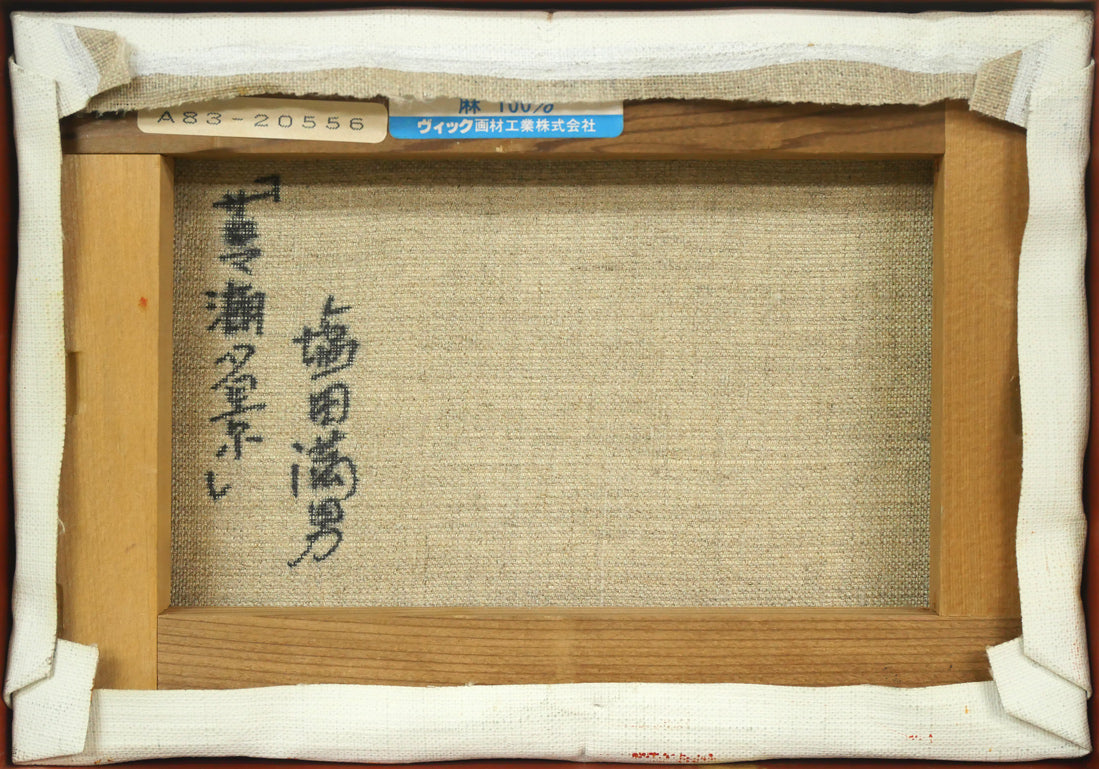 A83-20556
麻 100%
ヴィック画材工業株式会社
「瀬夕景」
塩田満男